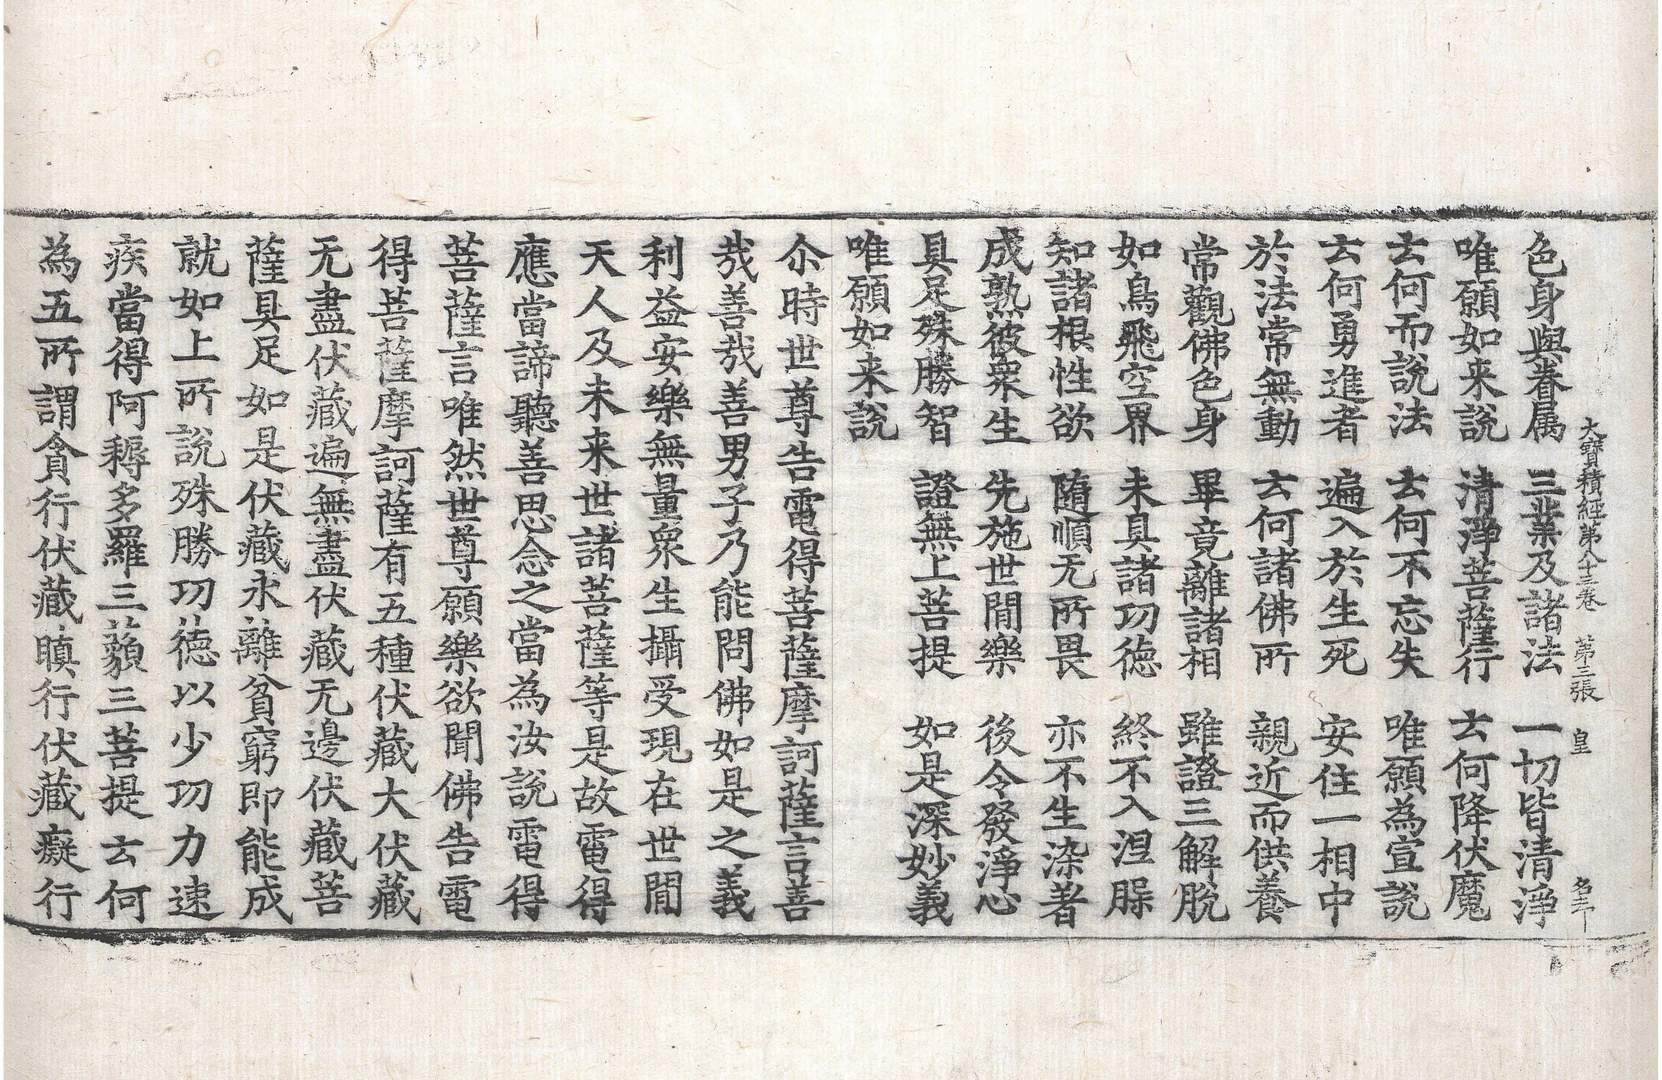 大寶積經第八十三卷 第三張 皇
色身與眷属 三業及諸法 一切皆清淨
唯願如来說 清淨菩薩行 云何降伏魔
云何而說法 云何不忘失 唯願為宣說
云何勇進者 遍入於生死 安住一相中
於法常無動 云何諸佛所 親近而供養
常觀佛色身 畢竟離諸相 雖證三解脫
如鳥飛空界 未具諸功德 終不入涅槃
知諸根性欲 随順无所畏 亦不生染著
成熟彼衆生 先施世閒樂 後令發淨心
具足殊勝智 證無上菩提 如是深妙義
唯願如来說
尒時世尊告電得菩薩摩訶薩言善
哉善哉善男子乃能問佛如是之義
利益安樂無量衆生攝受現在世閒
天人及未来世諸菩薩等是故電得
應當諦聽善思念之當為汝說電得
菩薩言唯然世尊願樂欲聞佛告電
得菩薩摩訶薩有五種伏藏大伏藏
无盡伏藏遍無盡伏藏无邊伏藏菩
薩具足如是伏藏永離貧窮即能成
就如上所說殊勝功德以少功力速
疾當得阿耨多羅三藐三菩提云何
為五所謂貪行伏藏瞋行伏藏癡行